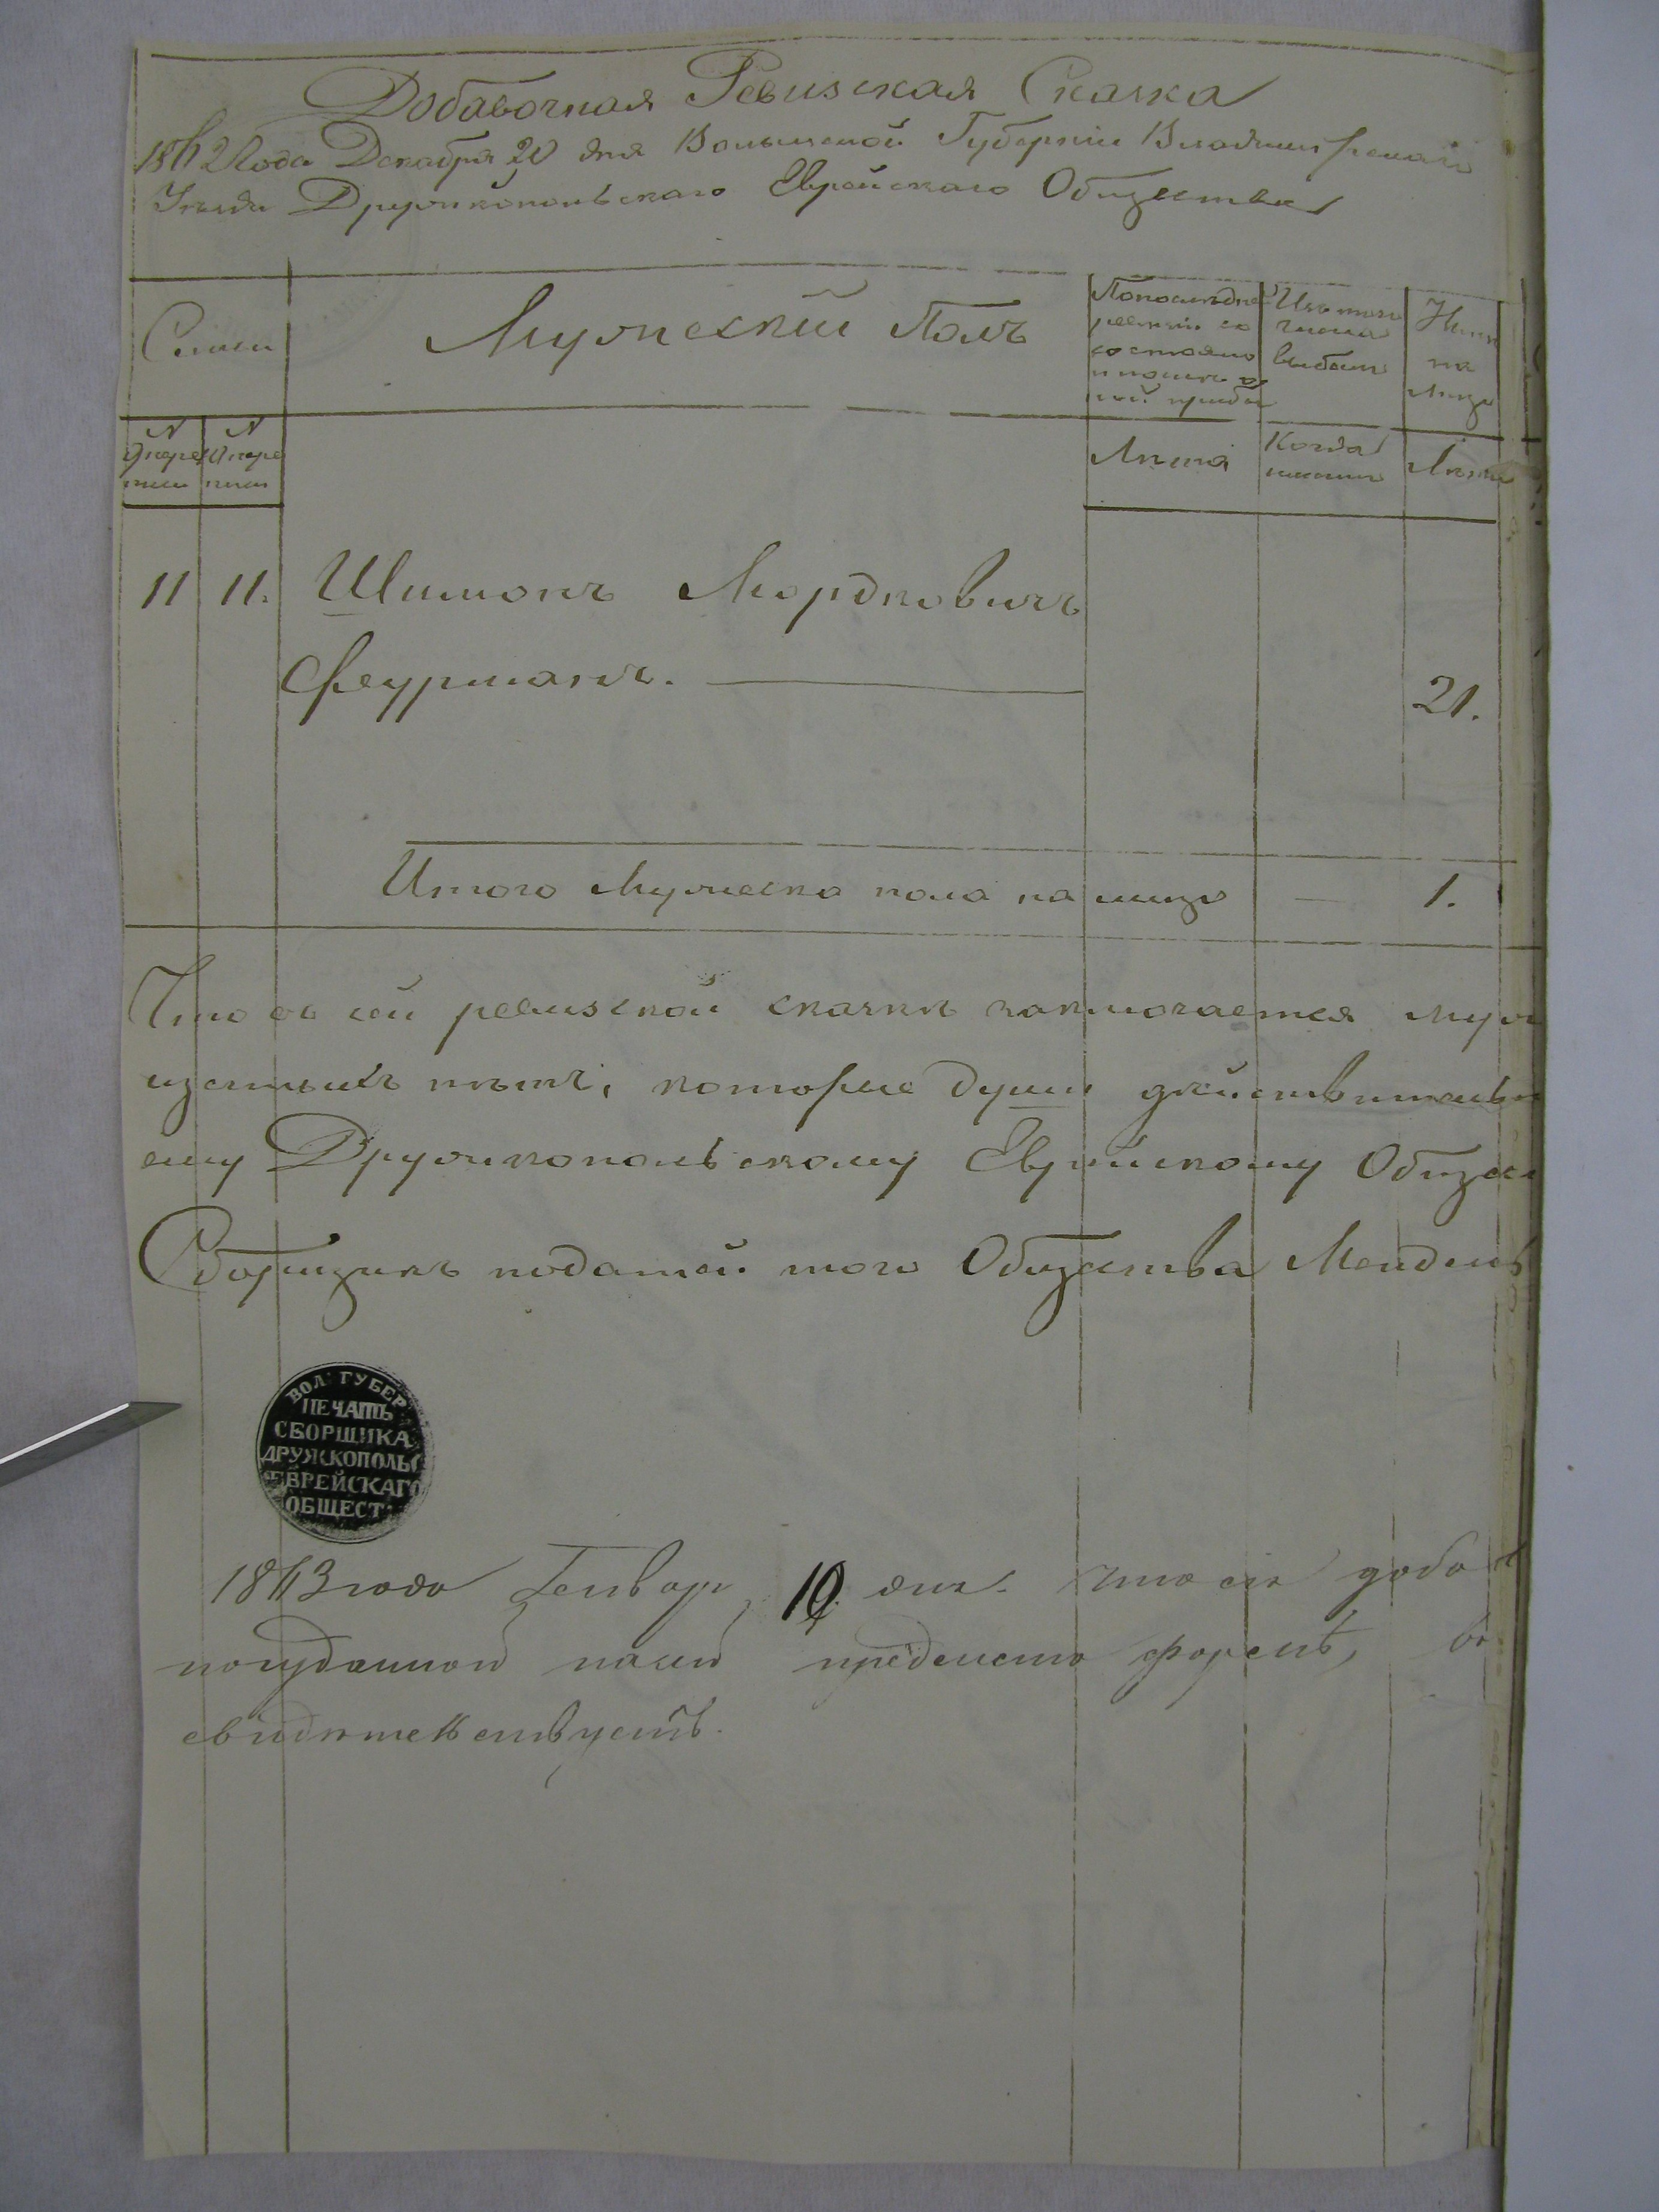 Добавочная Ревизская Сказка
1862 Года Декабря 20 дня Волынской Губернии Владимирскаго
Уезда Дружкопольскаго Еврейскаго Общества
Семьи
Мужескій Полъ
По последне
ревизіи со
состояло
и после о
ной прибы
Изъ того
числа
выбыло
Ныне
на
лицо
N
N
перепи
пере
писи
Лета
Когда
именно
Лета
11 11. Шимонъ Мордковичъ
Феурманъ. 21.
Итого Мужеска пола на лицо — 1.
Что въ сей ревизской сказке заключается муж
нетъ, которые души действительн
ему Дружкопольскому Еврейскому Общес
Сборщикъ податей того Общества Мендель
ВОЛ: ГУБЕР
ПЕЧАТЬ
СБОРЩИКА
ДРУЖКОПОЛЬС
ЕВРЕЙСКАГО
ОБЩЕСТ:
1863 года Генваря 10 дня. что сія доба
форме,
свидетельствуетъ.